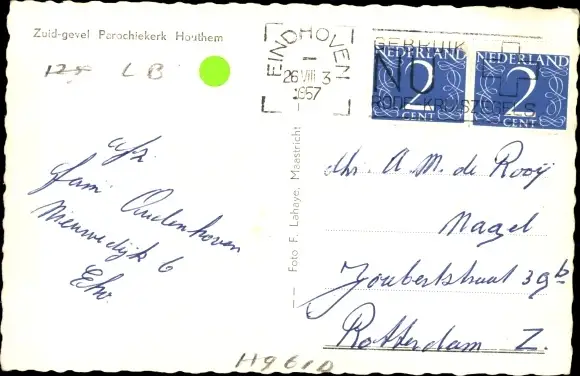 Zuid-gevel Parochiekerk Houthem
125 LB
EINDHOVEN
26 VIII 3
1957
GEBRUIK
NU
RODE KRUISZEGELS
NEDERLAND
2
CENT
NEDERLAND
2
CENT
afz.
fam. Oudenhoven
Nieuwedijk 6
Ehv.
Foto F. Lahaye, Maastricht
dhr. A. M. de Rooij
Nagel
Joubertstraat 39b
Rotterdam Z.
H961D